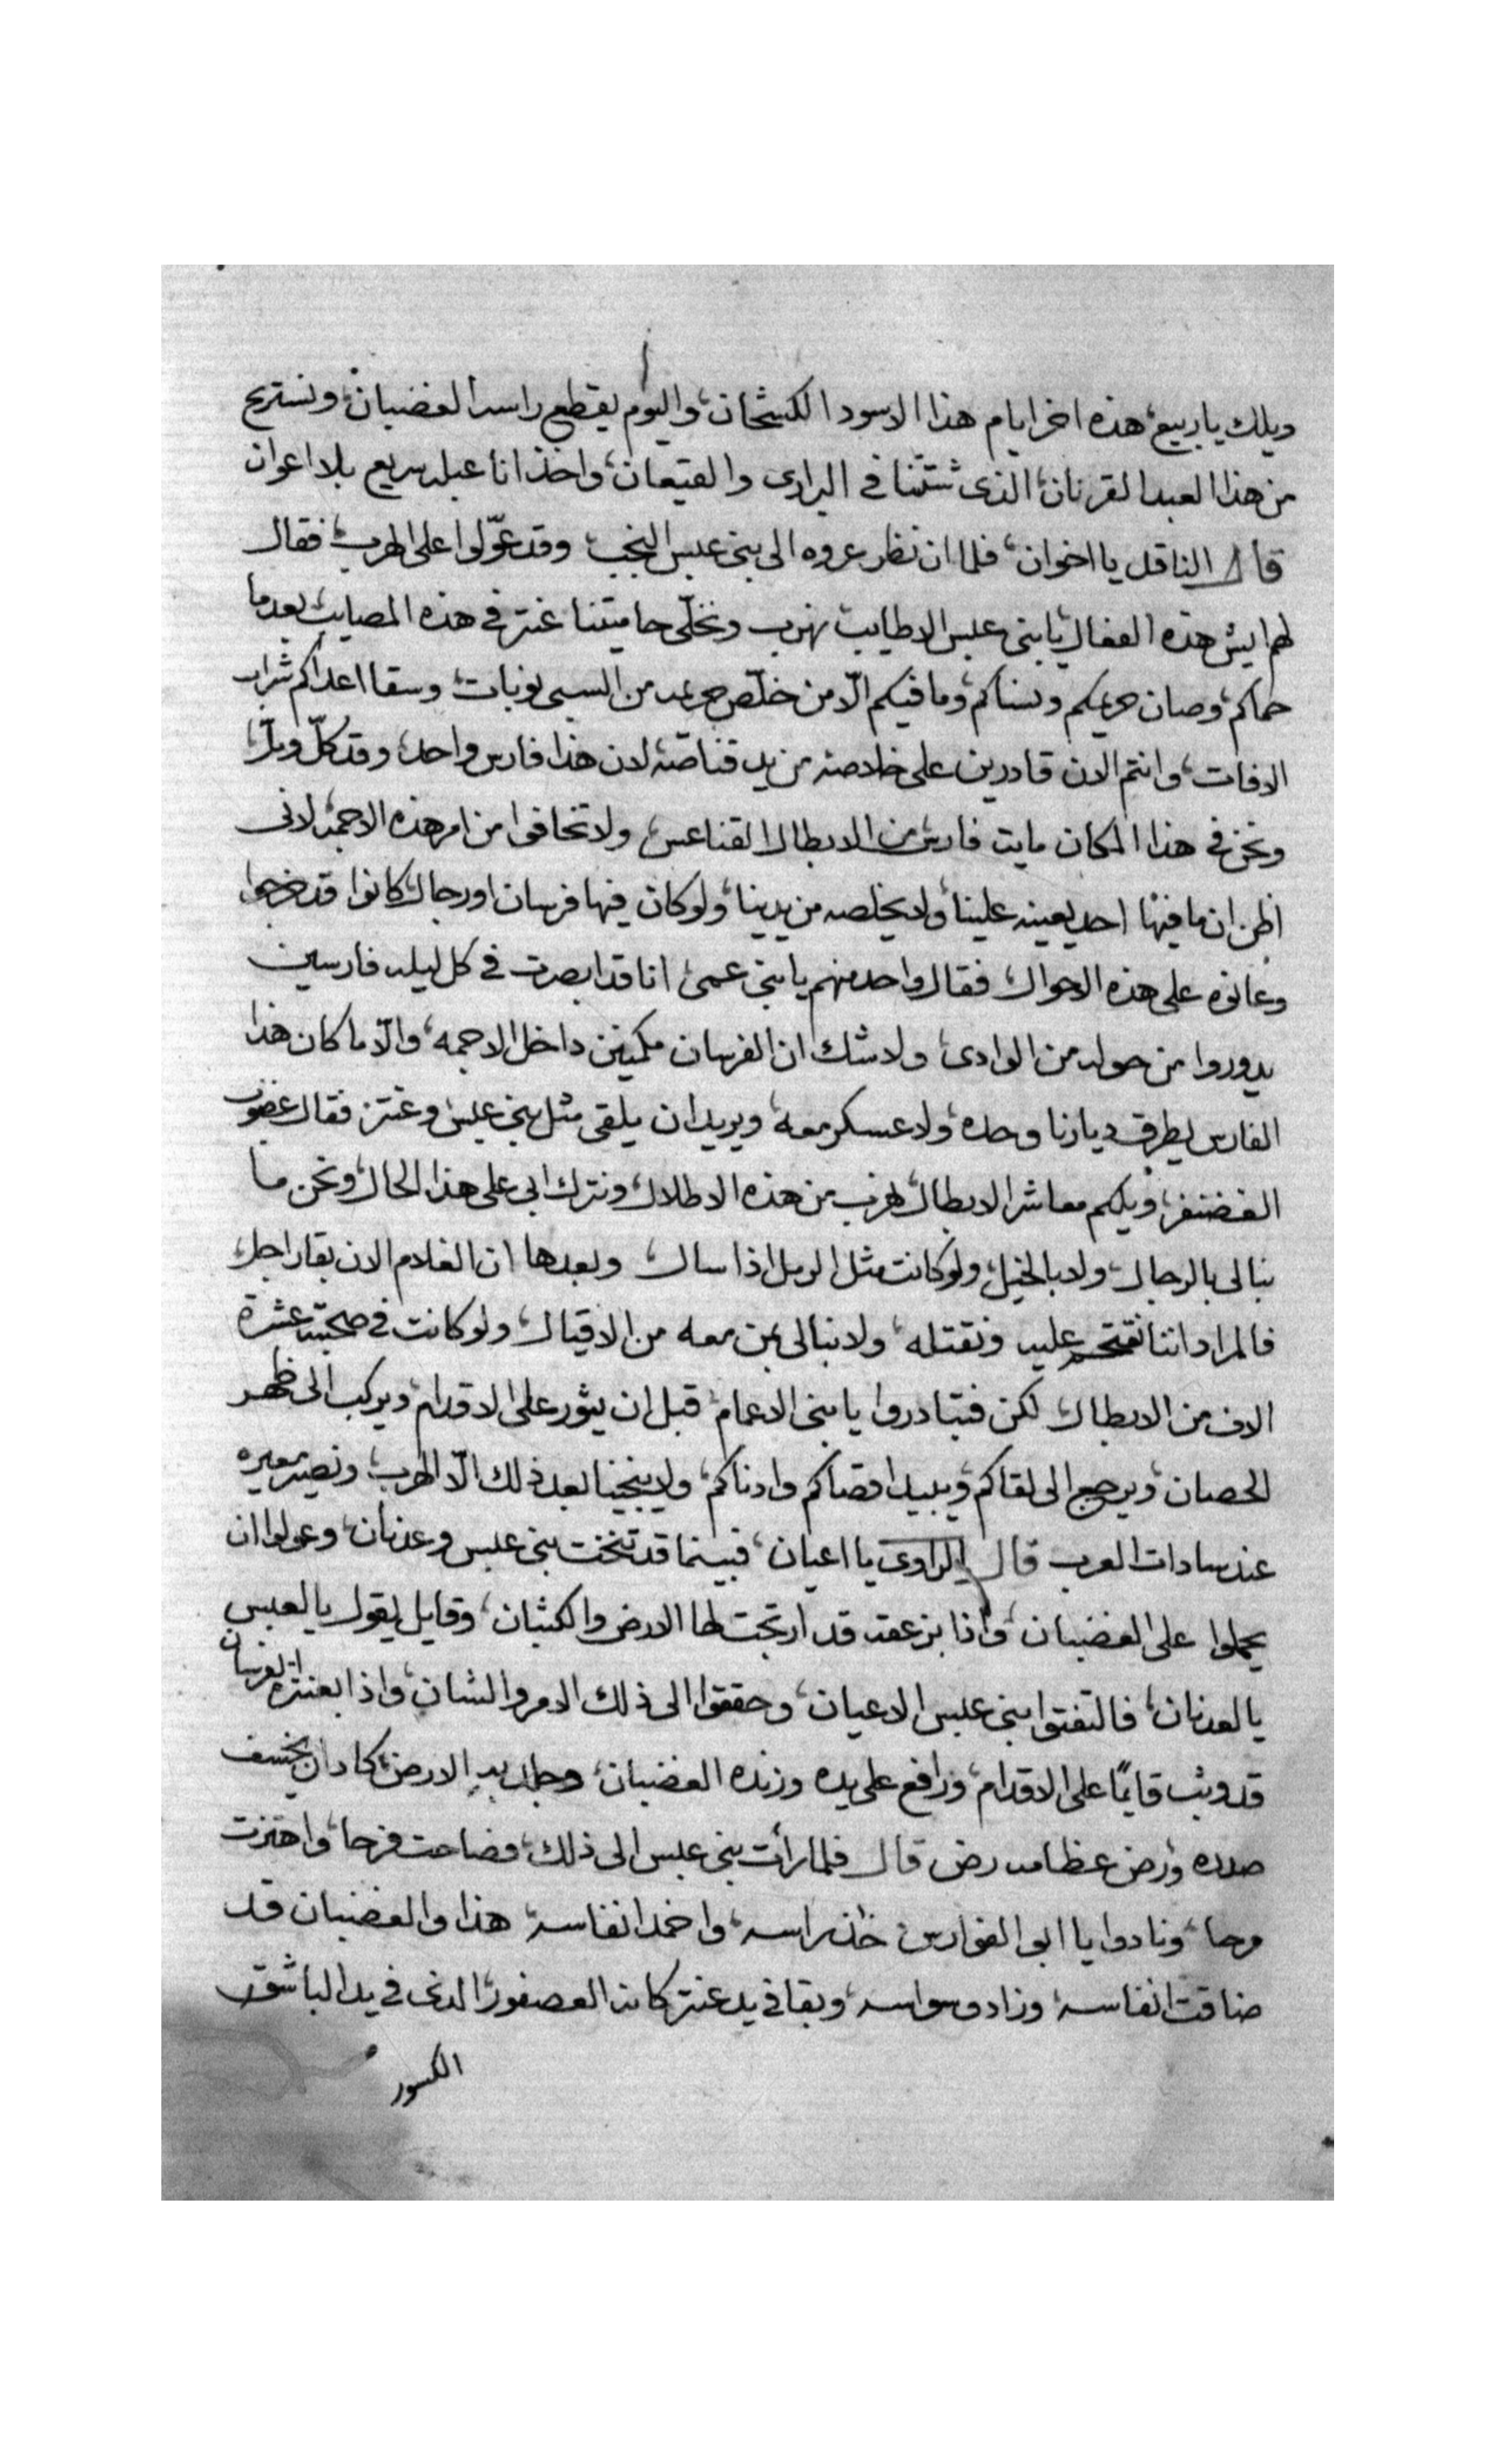 ويلك يا ربيع، هذه اخر ايام هذا الاسود الكشحان، واليوم يقطع راسه الغضبان، ونستريح
من هذا العبد القرنان، الذى شتتنا في البرارى والقيعان، واخذ انا عبله سريع بلا اعوان
قال الناقل يا اخوان، فلما ان نظر عروه الى بنى عبس النجب وقد عوّلوا على الهرب، فقال
لهم ايش هذه الفعال يا بنى عبس الاطايب نهرب ونخلّى حاميتنا عنتر في هذه المصايب، بعد ما
حماكم، وصان حريمكم ونساكم، وما فيكم الّا من خلّص حريمه من السبى نوبات، وسقا اعداكم شراب
الافات، وانتم الان قادرين على خلاصه من يد قناصه، لان هذا فارس واحد، وقد كلّ وملّ،
ونحن في هذا المكان مايت فارس من الابطال القناعس، ولا تخافوا من امر هذه الاجمه، لانى
اظن ان ما فيها احد يعينه علينا، ولا يخلصه من يدينا، ولو كان فيها فرسان او رجال، كانوا قد خرجوا
وعانوه على هذه الاحوال، فقال واحد منهم يا بنى عمى، انا قد ابصرت في كل ليله فارسين
يدوروا من حوله من الوادى، ولا شك ان الفرسان مكمنين داخل الاجمه، والّا ما كان هذا
الفارس يطرق ديارنا وحده، ولا عسكر معه، ويريد ان يلقى مثل بنى عبس وعنتر، فقال غضوب
الغضنفر، ويلكم معاشر الابطال، نهرب من هذه الاطلال، ونترك ابى على هذا الحال، ونحن ما
نبالى بالرجال، ولا بالخيل، ولو كانت مثل الرمل اذا سال، وبعدها ان الغلام الان بقا راجل،
فالمراد اننا نقتحم عليه ونقتله، ولا نبالى بمن معه من الاقيال، ولو كانت في صحبته عشرة
الاف من الابطال، لكن فتبادروا يا بنى الاعمام، قبل ان يثور على الاقدام، ويركب الى ظهر
الحصان، ويرجع الى لقاكم، ويبيد اقصاكم وادناكم، ولا ينجينا بعد ذلك الّا الهرب، ونصير معيره
عند سادات العرب قال الراوى يا اعيان، فبينما قد تنخت بنى عبس وعدنان، وعولوا ان
يحملوا على الغضبان، واذا بزعقه قد ارتجت لها الارض والكثبان، وقايل يقول يا لعبس
يا لعدنان، فالتفتوا بنى عبس الاعيان، وحققوا الى ذلك الامر والشان، واذا بعنتر الفرسان
قد وثب قايمًا على الاقدام، ورافع على يده وزنده الغضبان، وجلد به الارض، كاد ان يخسف
صدره، ورض عظامه رض قال فلما رأت بنى عبس الى ذلك، فصاحت فرحا، واهتزت
مرحا، ونادوا يا ابى الفوارس خذ راسه، واخمد انفاسه، هذا والغضبان قد
ضاقت انفاسه، وزاد وسواسه، وبقا في يد عنتر كانه العصفور، الذى في يد الباشق
الكسور